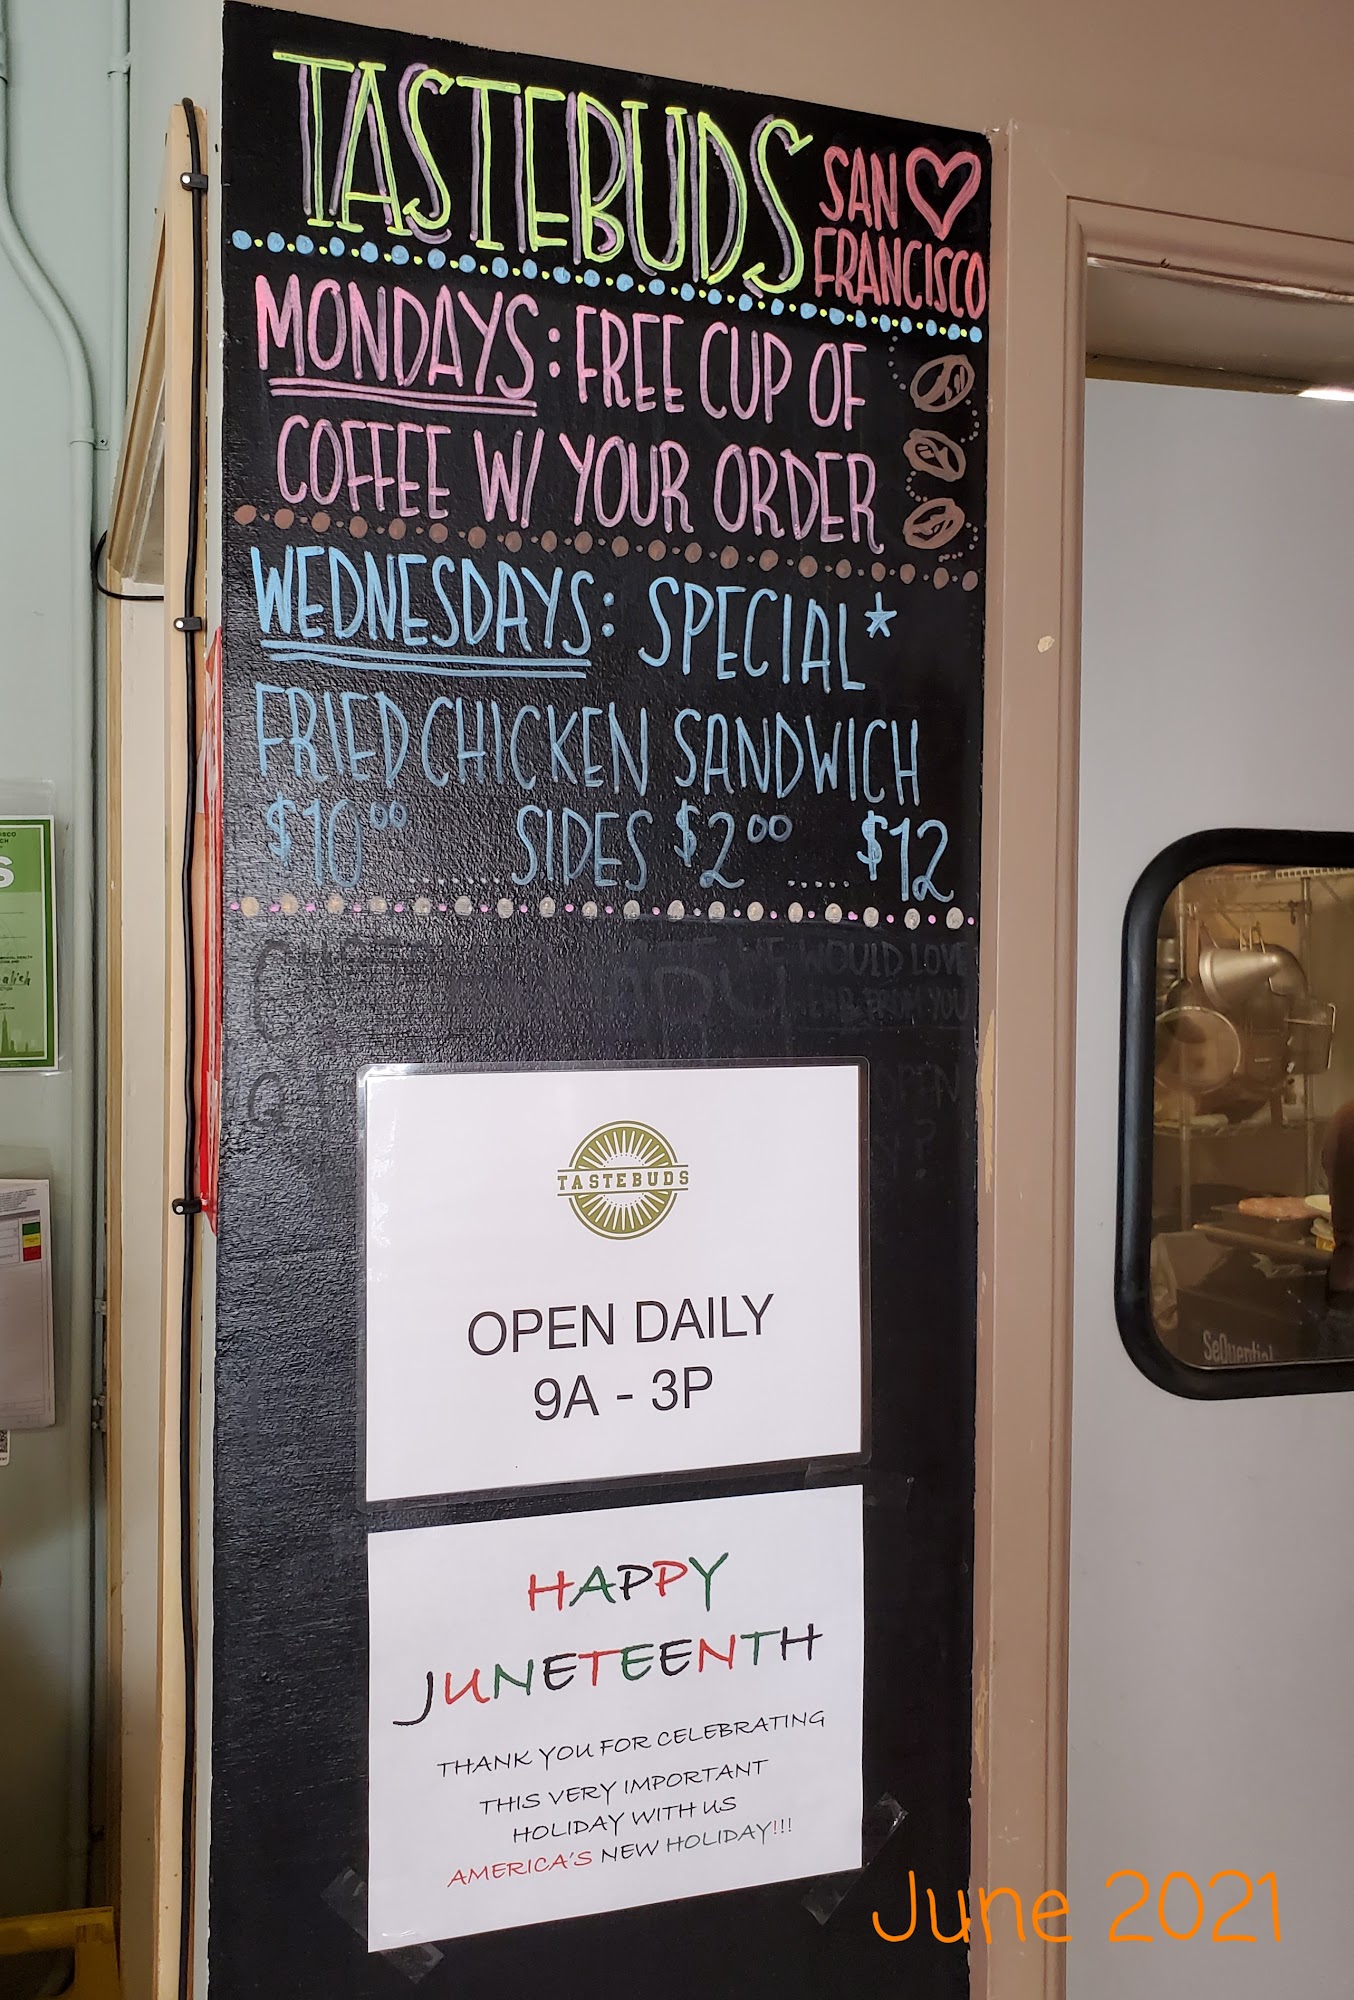 TASTEBUDS
SAN
FRANCISCO
MONDAYS: FREE CUP OF
COFFEE W/ YOUR ORDER
WEDNESDAYS: SPECIAL*
FRIED CHICKEN SANDWICH
$10.00 ........ SIDES $2.00 ..... $12
WE WOULD LOVE
HEAR FROM YOU
OPEN
TASTEBUDS
OPEN DAILY
9A - 3P
HAPPY
JUNETEENTH
THANK YOU FOR CELEBRATING
THIS VERY IMPORTANT
HOLIDAY WITH US
AMERICA'S NEW HOLIDAY!!!
SeQuential
June 2021